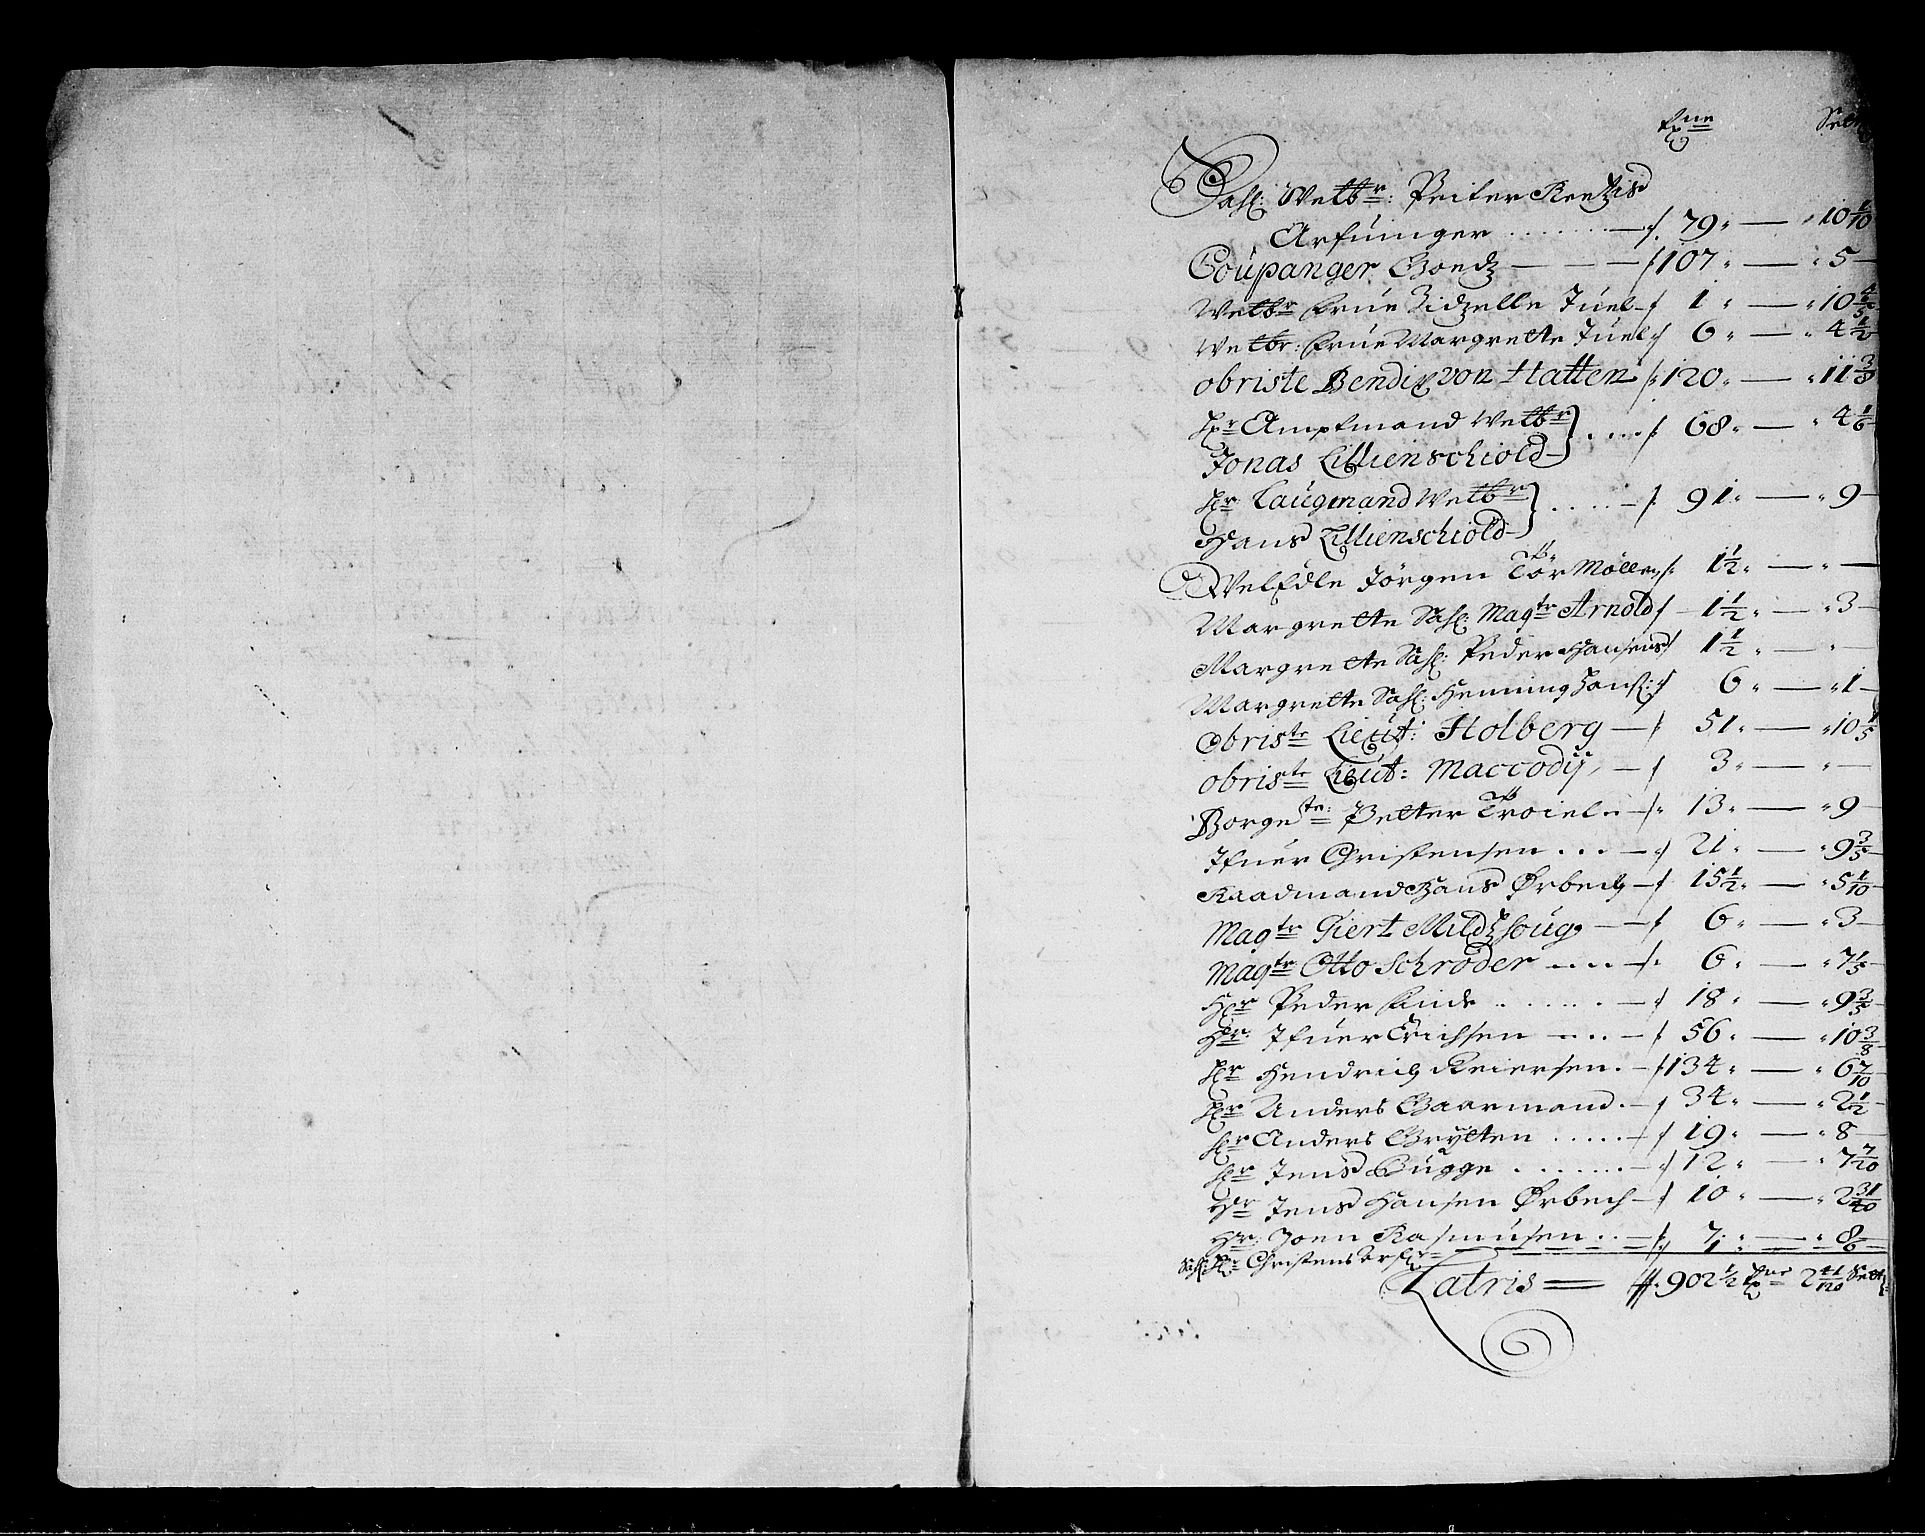 Sahl: Welbr: Peiter Reetzis
Arfuinger ....... — 79 — 10 1/10
Coupanger Goedz — — — 107 — 5 —
Welbr Frue Zidzelle Juel — 1 — 10 4/5
Welbr: Frue Margrette Juel 6 — 4 1/2
obriste Bendix von Hatten 120 — 11 3/8
Hr Ampfmand Welbr
Jonas Lillienschiold .... 68 — 4 1/6
Hr Laugmand Welbr
Hans Lillienschiold .... — 91 — 9 —
WelEdle Jörgen Tor Möllen 1 1/2 — —
Margrette Sahl: Magtr Arnold — 1 1/2 — 3 —
Margrette Sahl: Peder Hansens 1 1/2 — —
Margrette Sahl: Henning Hans: 6 — 1 —
Obriste Lieut: Holberg — 51 — 10 1/5
obriste Lieut: Maccody — 3 — —
Borgetr: Petter Troiel — 13 — 9 —
Ifuer Christensen ... — 21 — 9 3/5
Raadmand Hans Ørbech — 15 1/2 — 5 1/10
Magtr Giert Mildzhoug — 6 — 3 —
Magtr Otto Schroder ..... 6 — 7 1/5
Hr Peder Finde ...... — 18 — 9 3/5
Hr: Ifuer Erichsen .... — 56 — 10 3/8
Hr Hendrich Reiersen . — 134 — 6 7/10
Hr Anders Gaarmand . — 34 — 2 1/2
Hr Anders Brylten ..... — 19 — 8 —
Hr Jens Bugge ....... — 12 — 7 7/20
Hr Jens Hansen Ørbech — 10 — 2 31/40
Hr: Joen Rasmusen .. — 7 — 8
Sahl: Hr Christens
Latris — 902 1/2 2 41/120